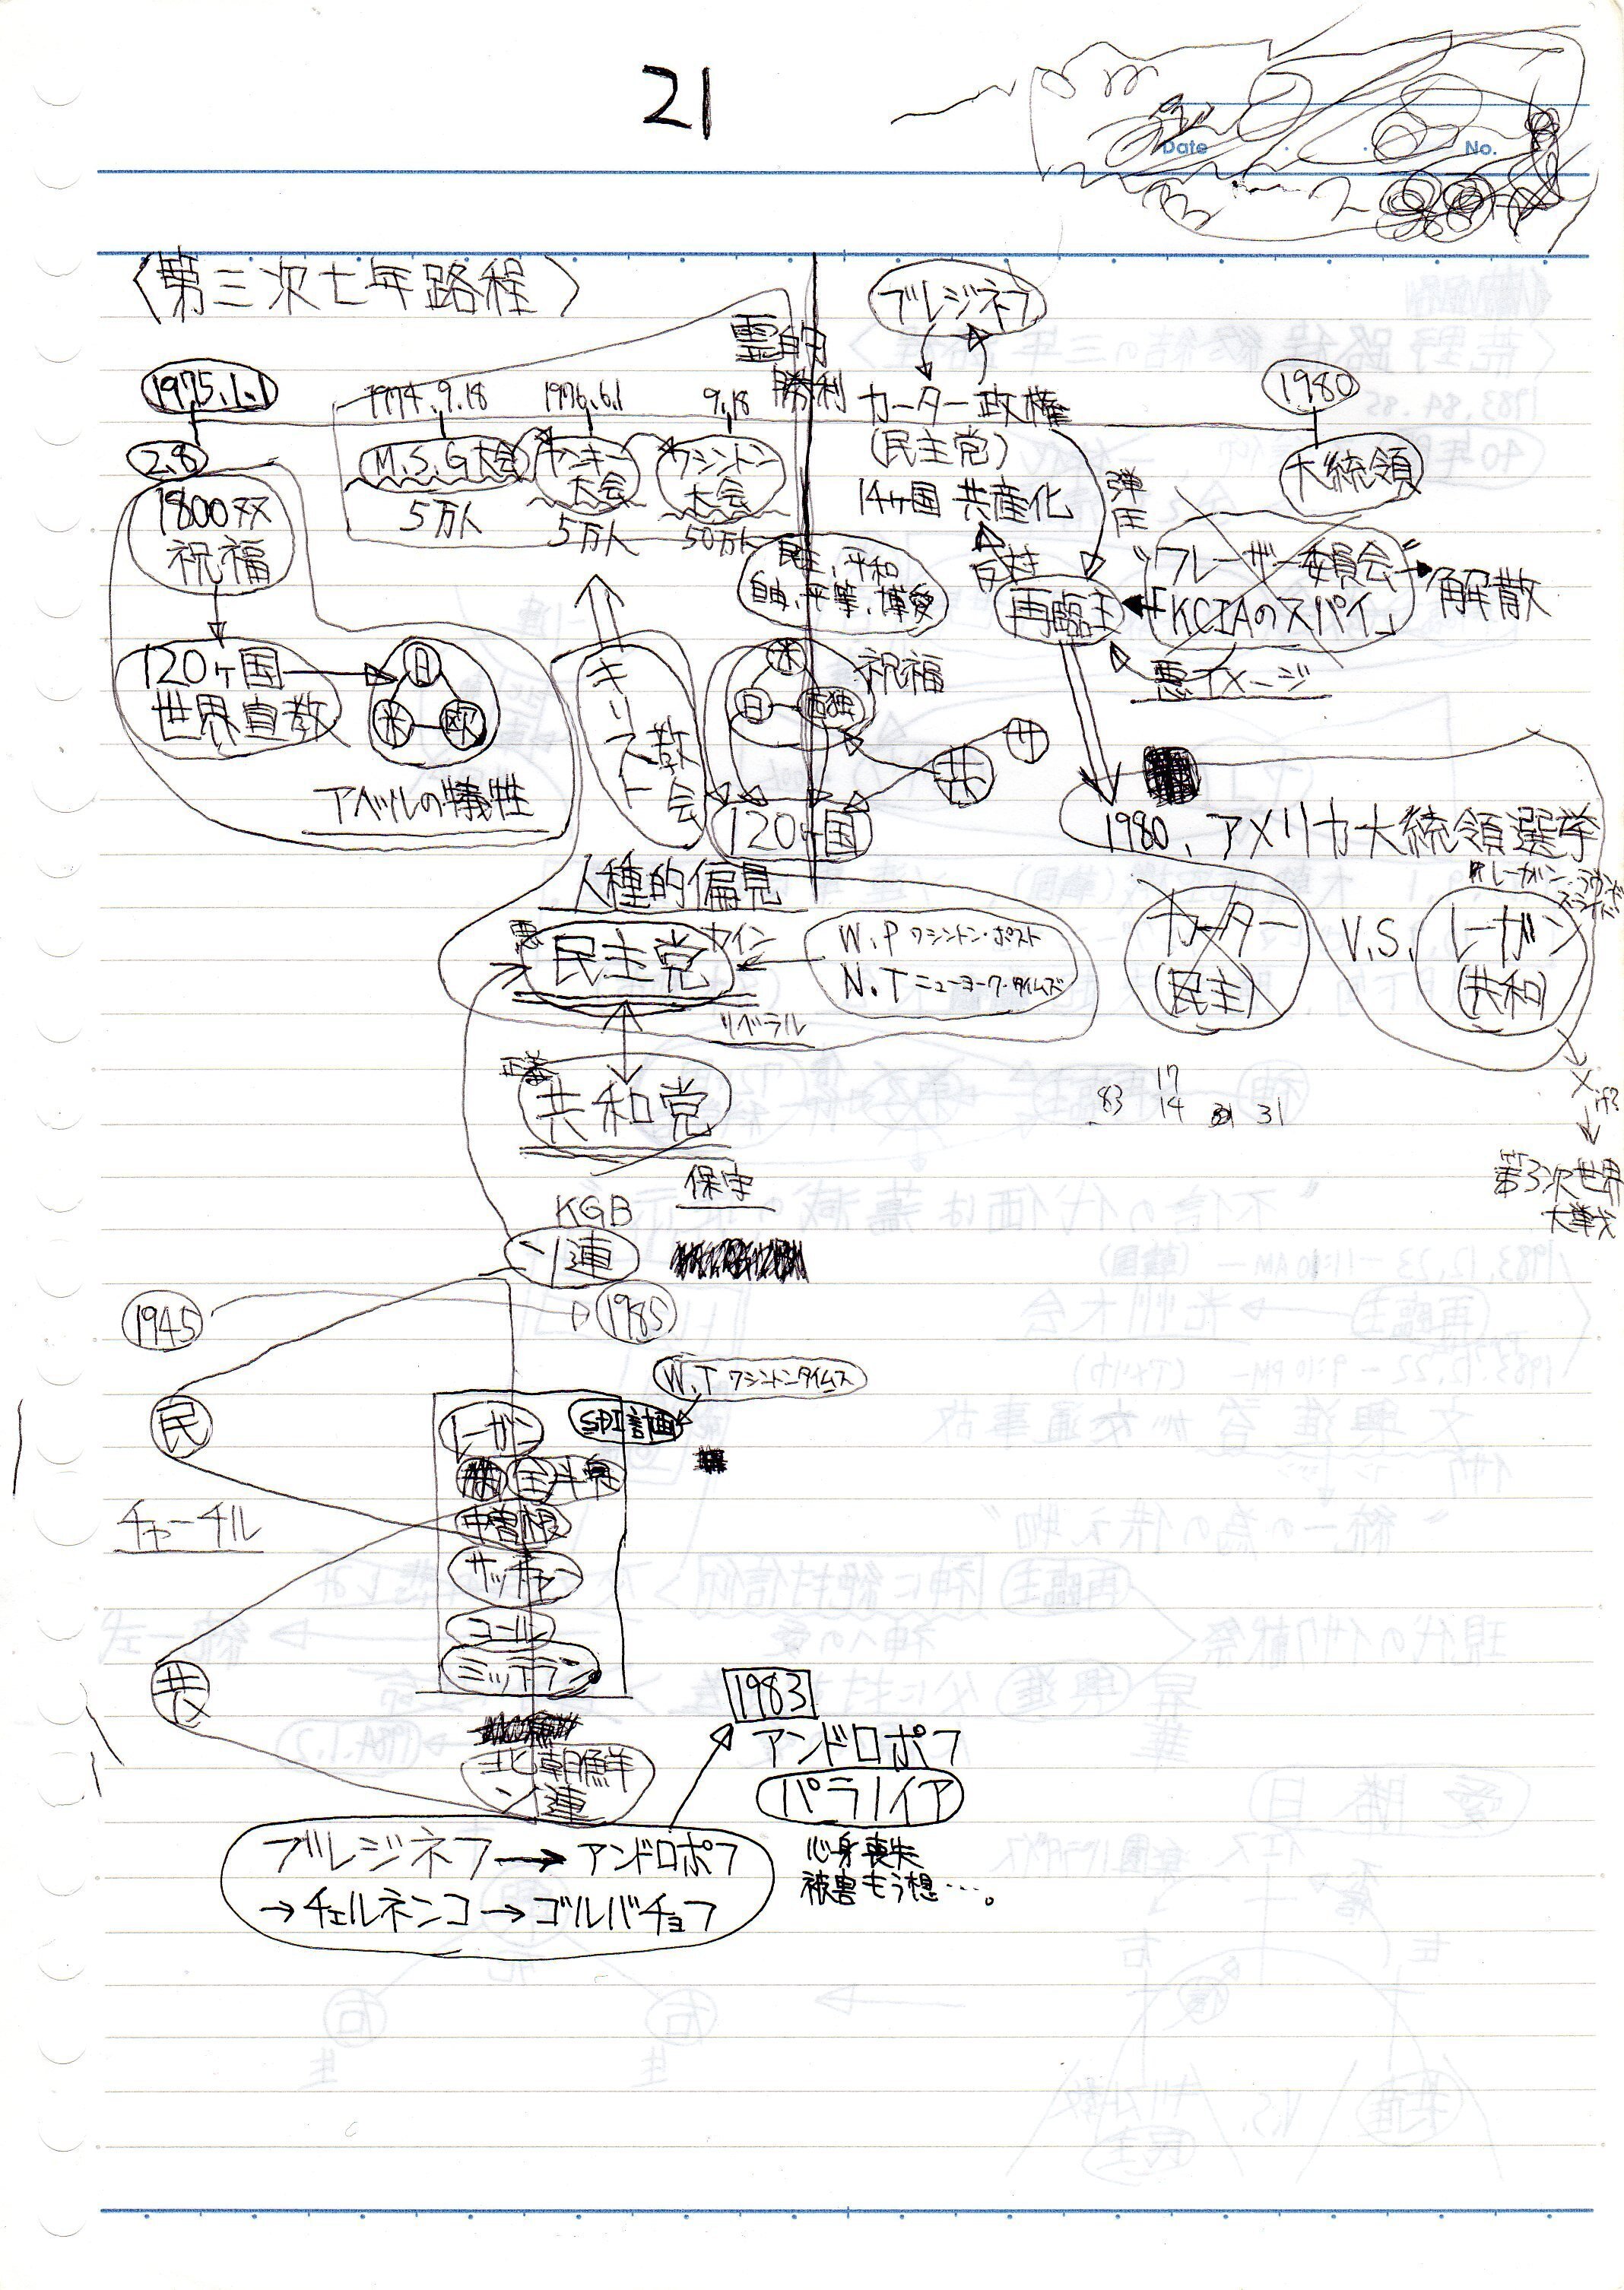 21
Date
No.
〈第三次七年路程〉
ブレジネフ
霊的
勝利
1975.1.1
1974.9.18
1976.6.1
9.18
カーター政権
1980
2.8
M.S.G大会
ヤンキー
大会
ワシントン
大会
(民主党)
大統領
1800双
祝福
5万人
5万人
50万人
14ヶ国 共産化
弾圧
民主、平和
自由、平等、博愛
反対
再臨主
"フレーザー委員会"
「KCIAのスパイ」
解散
悪イメージ
120ヶ国
世界宣教
日
米
欧
キリスト教会
米
日
西独
祝福
サ
共
アベルの犠牲
120ヶ国
1980、アメリカ大統領選挙
人種的偏見
悪
民主党
カイン
W.P ワシントン・ポスト
N.T ニューヨーク・タイムズ
リベラル
カーター
(民主)
V.S.
レーガン
(共和)
正義
共和党
保守
83
17
14
31
第3次世界
大戦
KGB
ソ連
1945
1985
W.T ワシントンタイムス
民
レーガン
SDI計画
全斗煥
中曽根
チャーチル
サッチャー
コール
ミッテラン
共
北朝鮮
ソ連
1983
アンドロポフ
パラノイア
心身喪失
被害もう想…。
ブレジネフ→アンドロポフ
→チェルネンコ→ゴルバチョフ